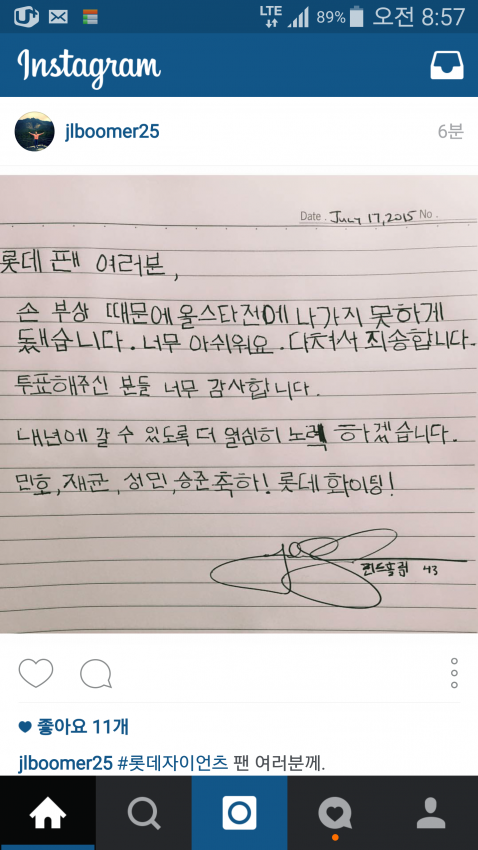 LTE 89% 오전 8:57
Instagram
jlboomer25 6분
Date . July 17, 2015 No .
롯데 팬 여러분,
손 부상 때문에 올스타전에 나가지 못하게
됐습니다. 너무 아쉬워요. 다쳐서 죄송합니다.
투표해주신 분들 너무 감사합니다.
내년에 갈 수 있도록 더 열심히 노력 하겠습니다.
민호, 재균, 성민, 승준 축하! 롯데 화이팅!
린드블럼 43
좋아요 11개
jlboomer25 #롯데자이언츠 팬 여러분께.